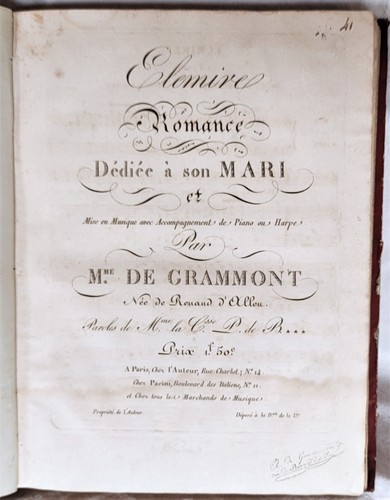 41
Elemire
Romance
Dédiée à son MARI
et
Mise en Musique avec Accompagnement de Piano ou Harpe
Par
M.ME DE GRAMMONT
Née de Renaud d'Allen.
Paroles de M.me la C.sse P. de B...
Prix 1.f 50.c
A Paris, Chez l'Auteur, Rue Charlot, N.º 14
Chez Pacini, Boulevard des Italiens, N.º 11.
et Chez tous les Marchands de Musique
Propriété de l'Auteur
Déposé à la D.on de la L.ie